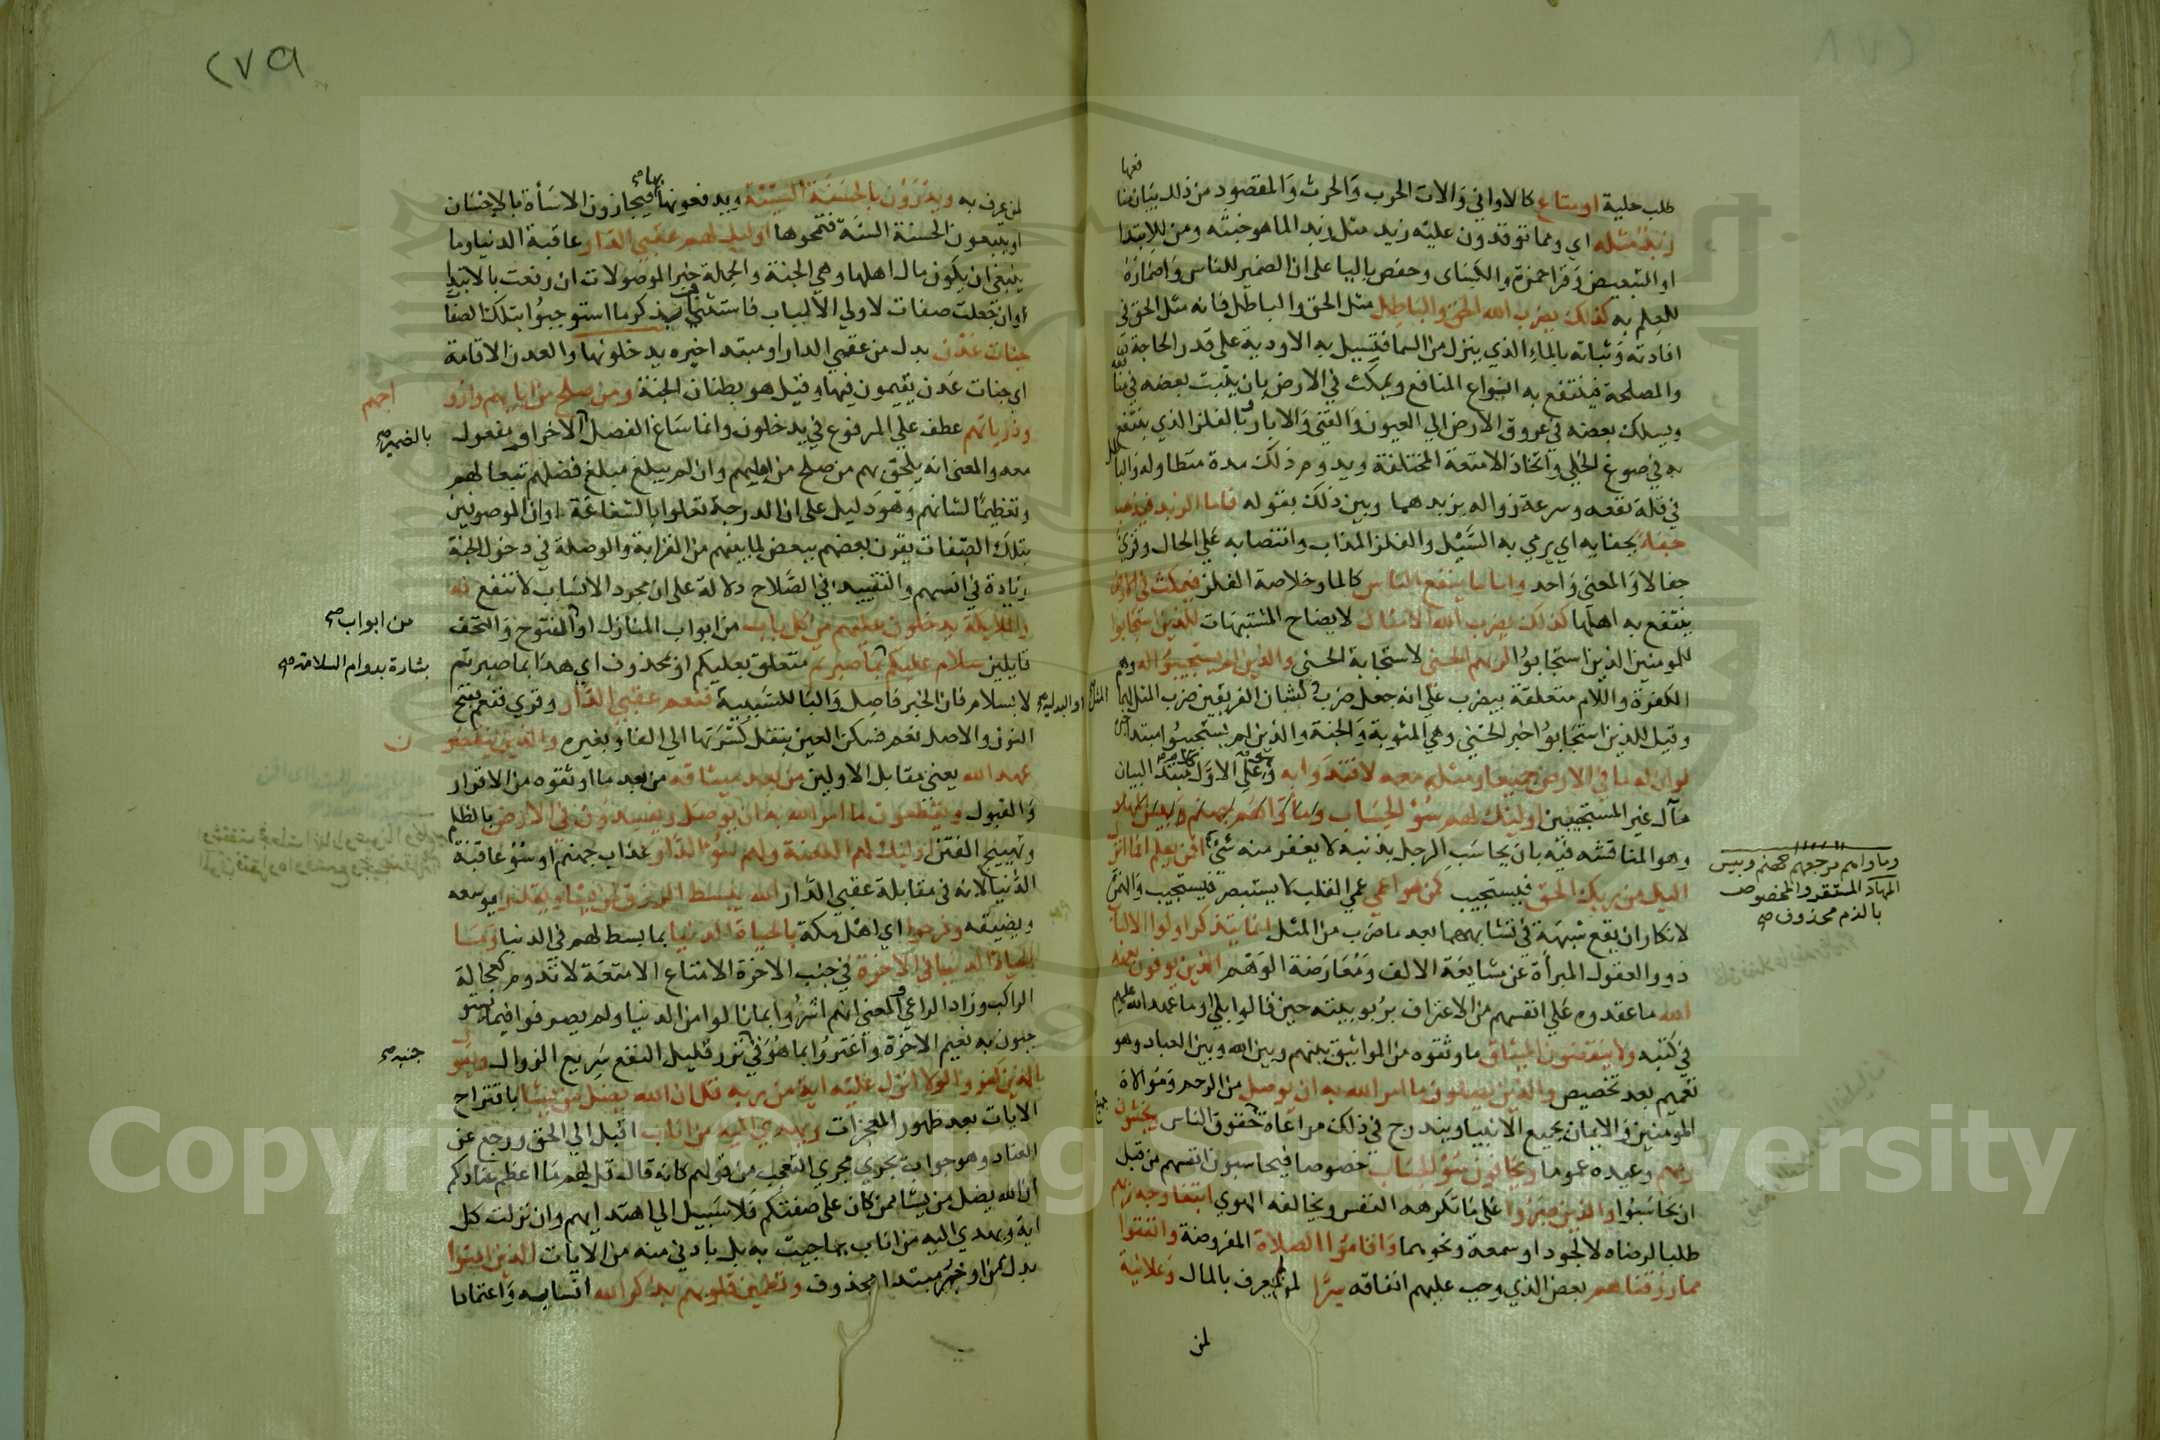 فعها
طلب حلية او متاع كالاواني وَالات الحرب وَالحرث وَالمقصود من ذلك بيَان منا
زبدٌ مثله اي ومما توقدون عليه زبد مثل زبد الما هو خبثه ومن للابتدا
او التبعيض وَقرا حمزة والكسَاى وحفص باليا على ان الضمير للناس وَاضمَارهُ
للعلم به كذلك يضرب الله الحق وَالبَاطِل مثل الحق والباطل فانه مثل الحق في
افادته وَثباته بالماء الذي ينزل من السما فتسيل به الاودية على قدر الحاجة
والمصلحة فينتفع به انواع المنافع ويمكث في الارض بان يثبت بعضه في منا
ويسلك بعضه في عروق الارض الي العيون وَالقني وَالابار وبالفلز الذي ينتفع
به في صوغ الحلي واتخاذ الامتعة المختلفة ويدوم ذلك مدة متطاولة وَالبا
في قلة نفعه وسرعة زواله بزبدهما وبين ذلك بقوله فاما الزبد فيذهب
جفاءً يجفا به اي يرمي به السَّيْل والفلز المذاب وانتصابه عَلي الحال وقري
جفالا وَالمعني وَاحد واما ما ينفع الناس كالما وخلاصة الفلز فيمكث في الارض
ينتفع به اهلها كذلك يضرب الله الامثال لايضاح المشتبهات للذين استجابوا
للمومنين الذين استجابوُا لربهم الحسني لاستجابة الحسني والذين لم يستجيبوُا له وهم
الكفرَة واللام متعلقة بيضرب عَلي انه جعل ضرب لشان الفريقين ضرب المثل لهما
وقيل للذين استجَابوُا خبر الحسَني وهي المثوبة وَالجنة والذين لم يستجيبوُا مبتدا خبره
لو ان لهم ما في الارض جميعا ومثله معه لافتدَوا به وَعلي الاوَّل مبتدا لبيان
مَآل غير المستجيبين اوليك لهم سُوْ الحسَاب وماوَاهُم جهنم وَبيس المهاد
وهو المناقشه فيْه بانَ يحاسَب الرجل بذنبه لا يغفر منه شيٌ افمن يعلم انما انزل
اليك من ربك الحق فيستجيب كمن هو اعمي عمي القلب لا يستبصر فيستجيب وَالهمزَة
لانكار ان يقع شبهَة في تشابههما بعد ما ضرب من المثل انما يتذكر اولوا الالبَاب
ذووا العقول المبرأة عن مشايعَة الالف وَمُعَارضة الوَهم الذين يوفون بعهد
الله ما عقدوه عَلي انفسهم من الاعتراف برُبوبيته حين قالوا بلي او ما عهد الله عليهم
في كتبه ولا ينقضون الميثاق ما وثقوه من المواثيق بينهم وبين الله وبين العباد وهو
تعميم بعد تخصيص والذين يصلون ما امر الله به ان يوصل من الرحم وَمُوالاة
المومنين في الايمان بجميع الانبيا ويندرج في ذلك مراعَاة حقوق الناس ويخشون
ربهم وعيده عموما ويخافون سُوْ الحسَاب خصوصا فيحاسبون انفسهم من قبل
ان يحَاسَبُوا والذين صَبَرُوا عَلي مَا تكرهه النفس ويخالفه الهوي ابتغا وجه ربهم
طلبا لرضاه لا لجود او سمعة ونحوهما وَاقامُوُا الصلاة المفروضة وانفقوا
مما رزقناهم بعض الذي وجب عليهم انفاقه سِرًّا لمن لم يعرف بالمال وَعَلانية
لمن
وماواهم مرجعهم جهنم وبيس
المهاد المستقر والمخصوص
بالذم محذوف صح
٢٧٩
لمن عرف به ويدْرَؤن بالحسَنَة السَّيْئَة ويدفعونها بها صح فيجازون الاسَأة بالاحْسَان
او يتبعون الحسنة السيئة فتمحوها اوليك لهم عقبي الدار عاقبة الدنيا وما
ينبغي ان يكَون مال اهلها وهي الجنة والجملة خبر الموصُولات ان رفعت بالابتدا
وان جعلت صفات لاولي الألباب فاستئناف بذكر ما استوجبوُا بتلك الصفا
جنات عَدْن بدل من عقبي الدار او مبتدا خبره يدخلونها والعدن الاقامة
اي جنات عَدن يقيمون فيها وقيل هو بطنان الجنة ومن صلح من ابايهم وازو
اجهم
وذرياتهم عطف علي المرفوع في يدخلون وانما سَاغ الفصل بالضمير صح الاخر او مفعول
معه والمعنى انه يلحق بهم من صلح من اهليهم وان لم يبلغ مبلغ فضلهم تبعا لهم
وتعْظيمًا لشانهم وَهُوَ دَليل على ان الدرجة تعلوا بالشفاعَة او ان الموصوفين
بتلك الصّفات يقرن بعضهم ببعض لما بينهم من القرابة والوصلة في دخول الجنة
زيادة في انسهم والتقييد في الصَّلاح دلالة على ان مجرد الانسَاب لا تنفع
والملايكة يدخلون عليهم من كل باب من ابواب المنازل او من ابواب صح الفتوح وَالتحف
قايلين سلام عليكم بشارة بدوام السلامة صح بما صبرتم متعلق بعليكم او بمحذوف اي هذا بما صبرتم
لا بسلام فان الخبر فاصل وَالبَا للسَببيَّة او البدلية صح فنعم عقبي الدَّار وقري فنعم بفتح
النون والاصل نعم فسكن العين بنقل كسْرَتها الي الفا وبغيره والذين ينقضون
عهد الله يعني مقابل الاولين من بعد ميثاقه من بعد ما اوثقوه من الاقرار
وَالقبول ويقطعون ما امر الله به ان يوصل ويفسدوَن في الارض بالظلم
وتهييج الفتن اوليك لهم اللعنة ولهم سُوْ الدَّار عذاب جهنم او سُوْ عاقبة
الدُّنيا لانه في مقابلة عقبي الدَّار الله يبسط الرزق لمن يشا ويقدر يوسعه
ويضيقه وفرحوا اي اهْل مكة بالحياة الدنيا بما بسط لهم في الدنيا وَمَا
الحياة الدنيا في الاخرة في جنب الاخرة الا متاع الا متعَة لا تدوم كعجالة
الراكب وزاد الراعي والمعنى انهم اشرُوا بما نالوا من الدنيا ولم يصرفوا فيما يستو
جبون به نعيم الاخرة وأغترُوا بما هُوَ في جنبه صح نزر قليل النفع سَريع الزوال ويقو
الذين كفروا لولا انزل عليه اية من ربه قل ان الله يضل من يشا باقتراح
الايات بعد ظهور المعجزات ويهدي اليه من اناب اقبل الي الحق ورجع عن
العناد وهو جواب يجري مجري التعجب من قولهم كانه قال قل لهم مَا اعظم عنادكم
ان الله يضل من يشا ممن كان على صفتكم فلا سَبيل الي اهتدايهم وان نزلت كل
اية ويهدي اليه من اناب بما جيت به بل بادني منه من الايات الذين امنوا
بدل من من او خبر مبتدا محذوف وتطمين قلوبهم بذكر الله انسَا به وَاعتمادا
Copyright © King Saud University